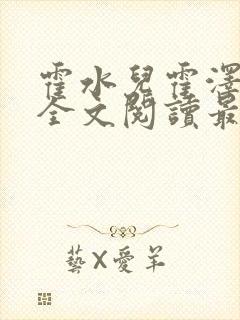 霍水兒霍澤
全文閱讀最
藝X愛羊